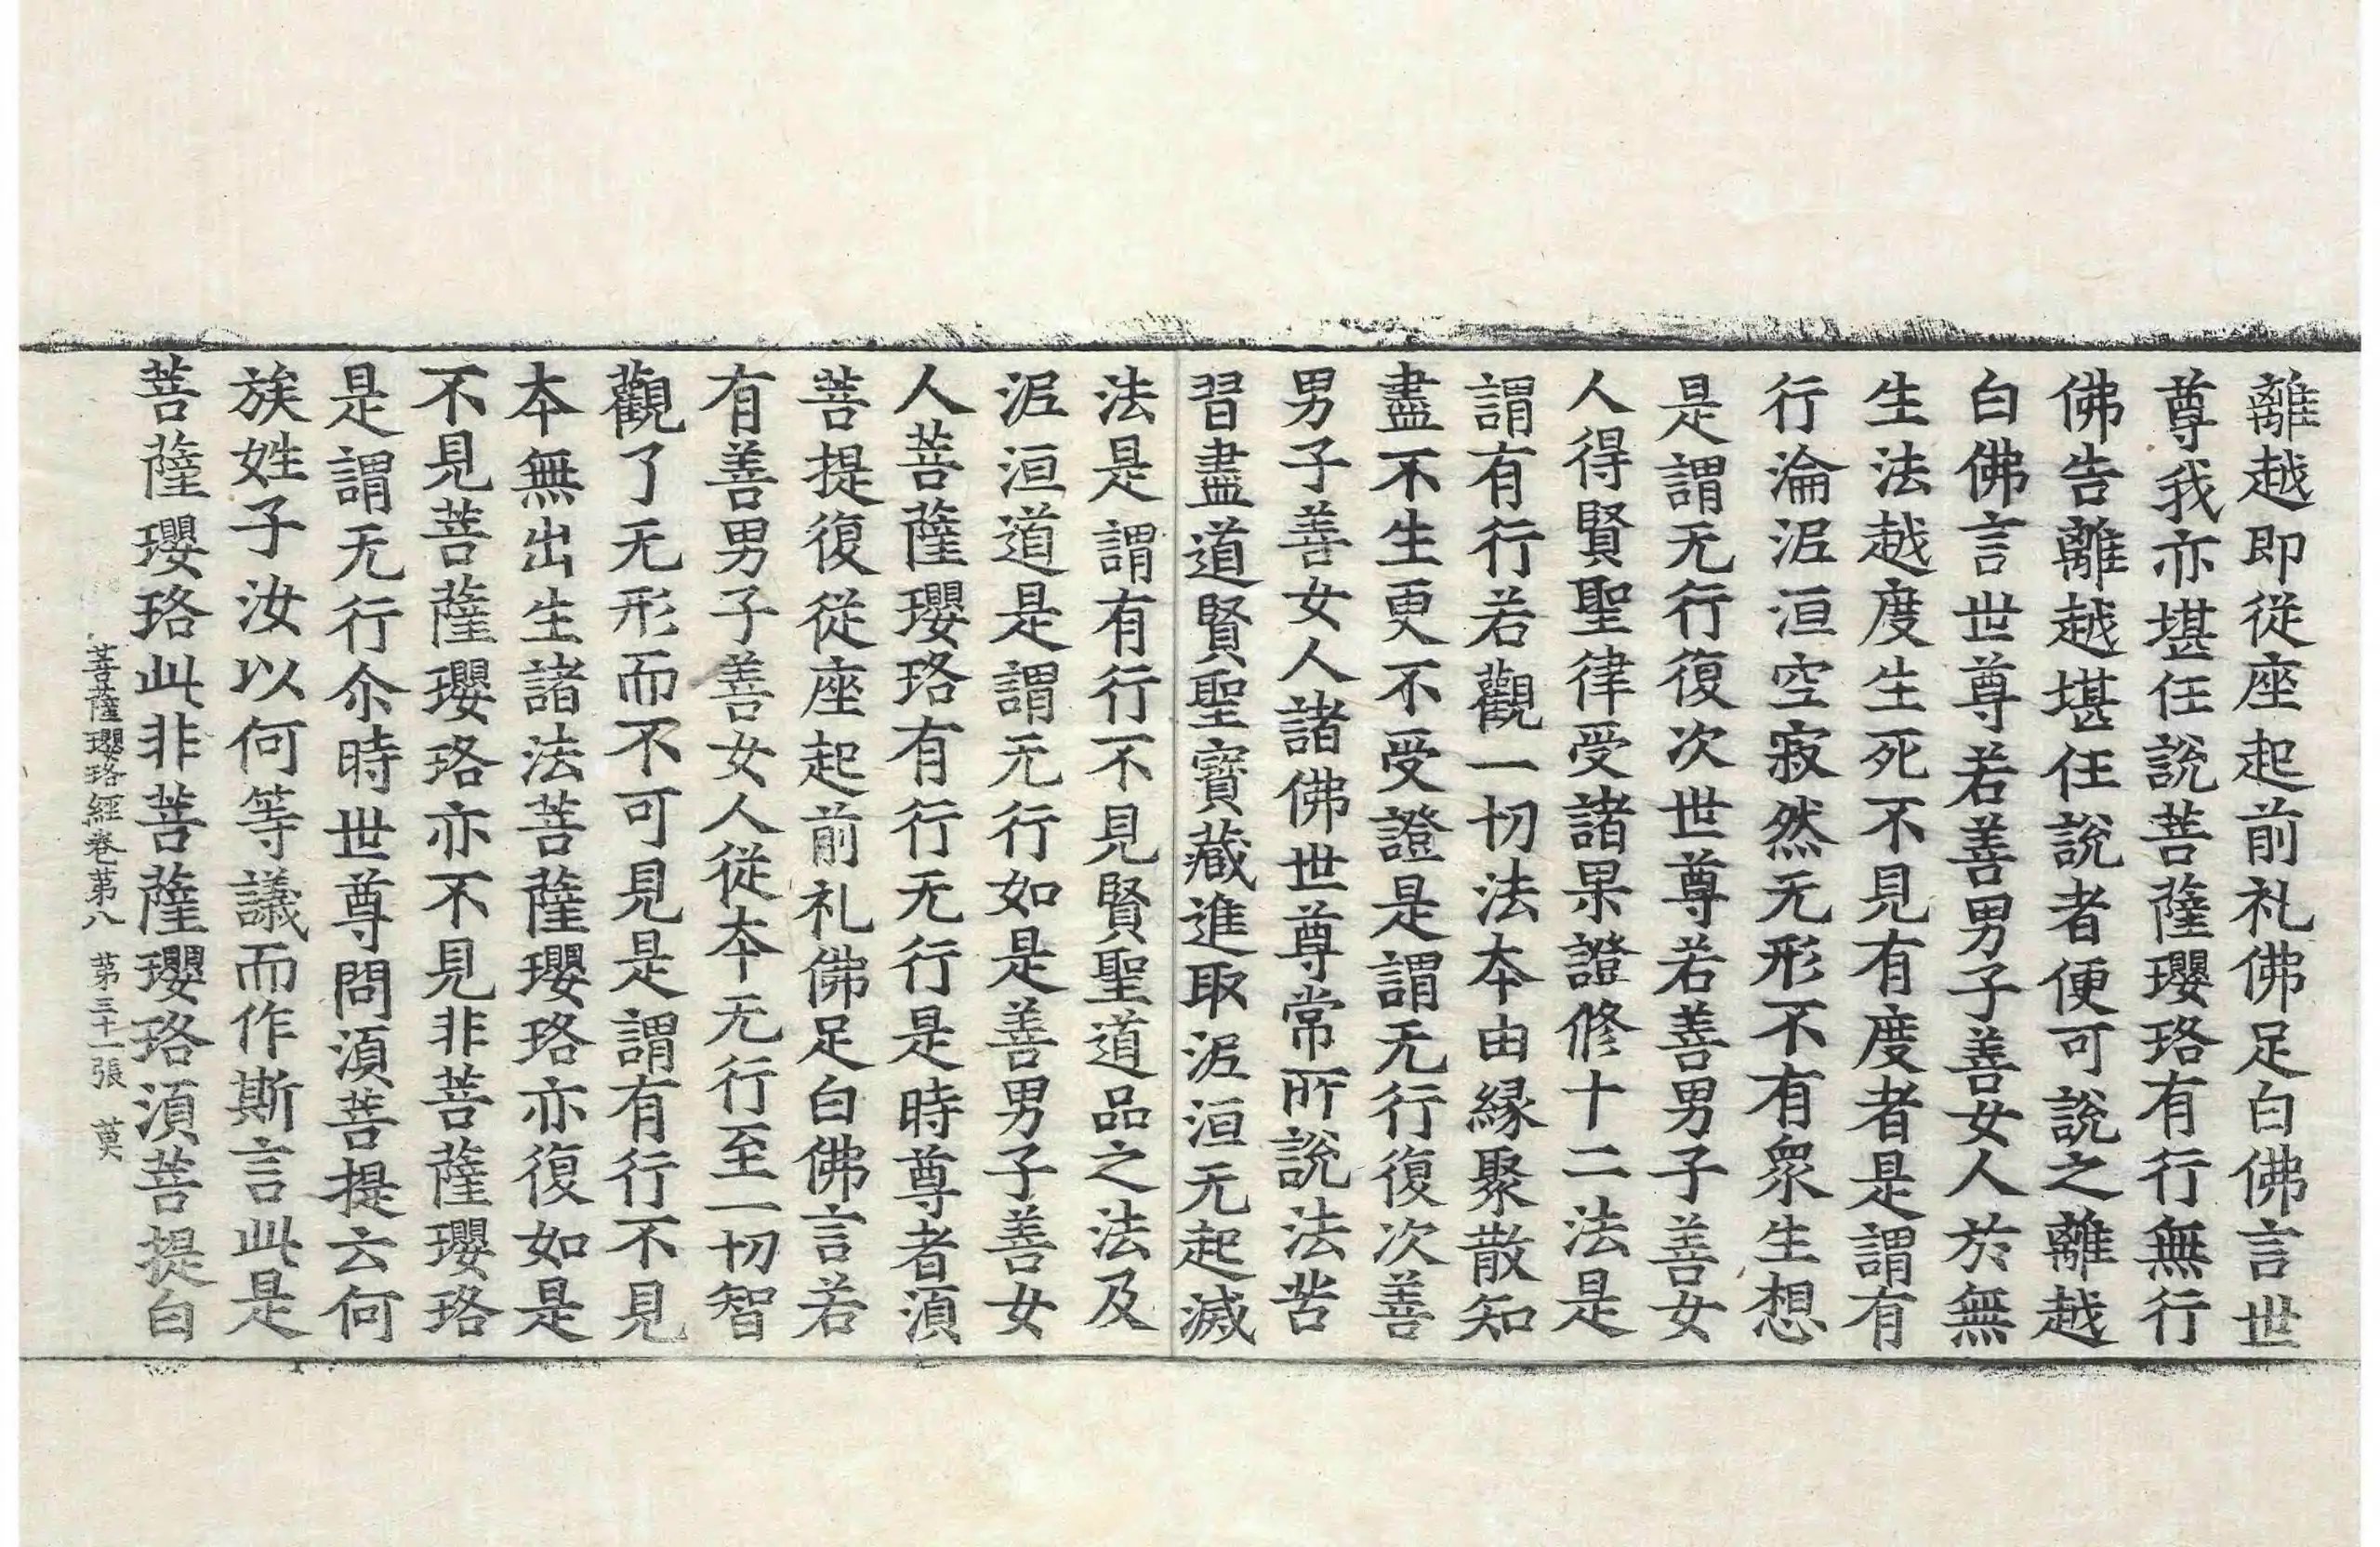 離越即從座起前礼佛足白佛言世
尊我亦堪任說菩薩瓔珞有行無行
佛告離越堪任說者便可說之離越
白佛言世尊若善男子善女人於無
生法越度生死不見有度者是謂有
行淪泥洹空寂然无形不有衆生想
是謂无行復次世尊若善男子善女
人得賢聖律受諸果證修十二法是
謂有行若觀一切法本由緣聚散知
盡不生更不受證是謂无行復次善
男子善女人諸佛世尊常所說法苦
習盡道賢聖寶藏進取泥洹无起滅
法是謂有行不見賢聖道品之法及
泥洹道是謂无行如是善男子善女
人菩薩瓔珞有行无行是時尊者湏
菩提復從座起前礼佛足白佛言若
有善男子善女人從本无行至一切智
觀了无形而不可見是謂有行不見
本無出生諸法菩薩瓔珞亦復如是
不見菩薩瓔珞亦不見非菩薩瓔珞
是謂无行尒時世尊問湏菩提云何
族姓子汝以何等議而作斯言此是
菩薩瓔珞此非菩薩瓔珞湏菩提白
菩薩瓔珞經卷第八 第三十一張 莫